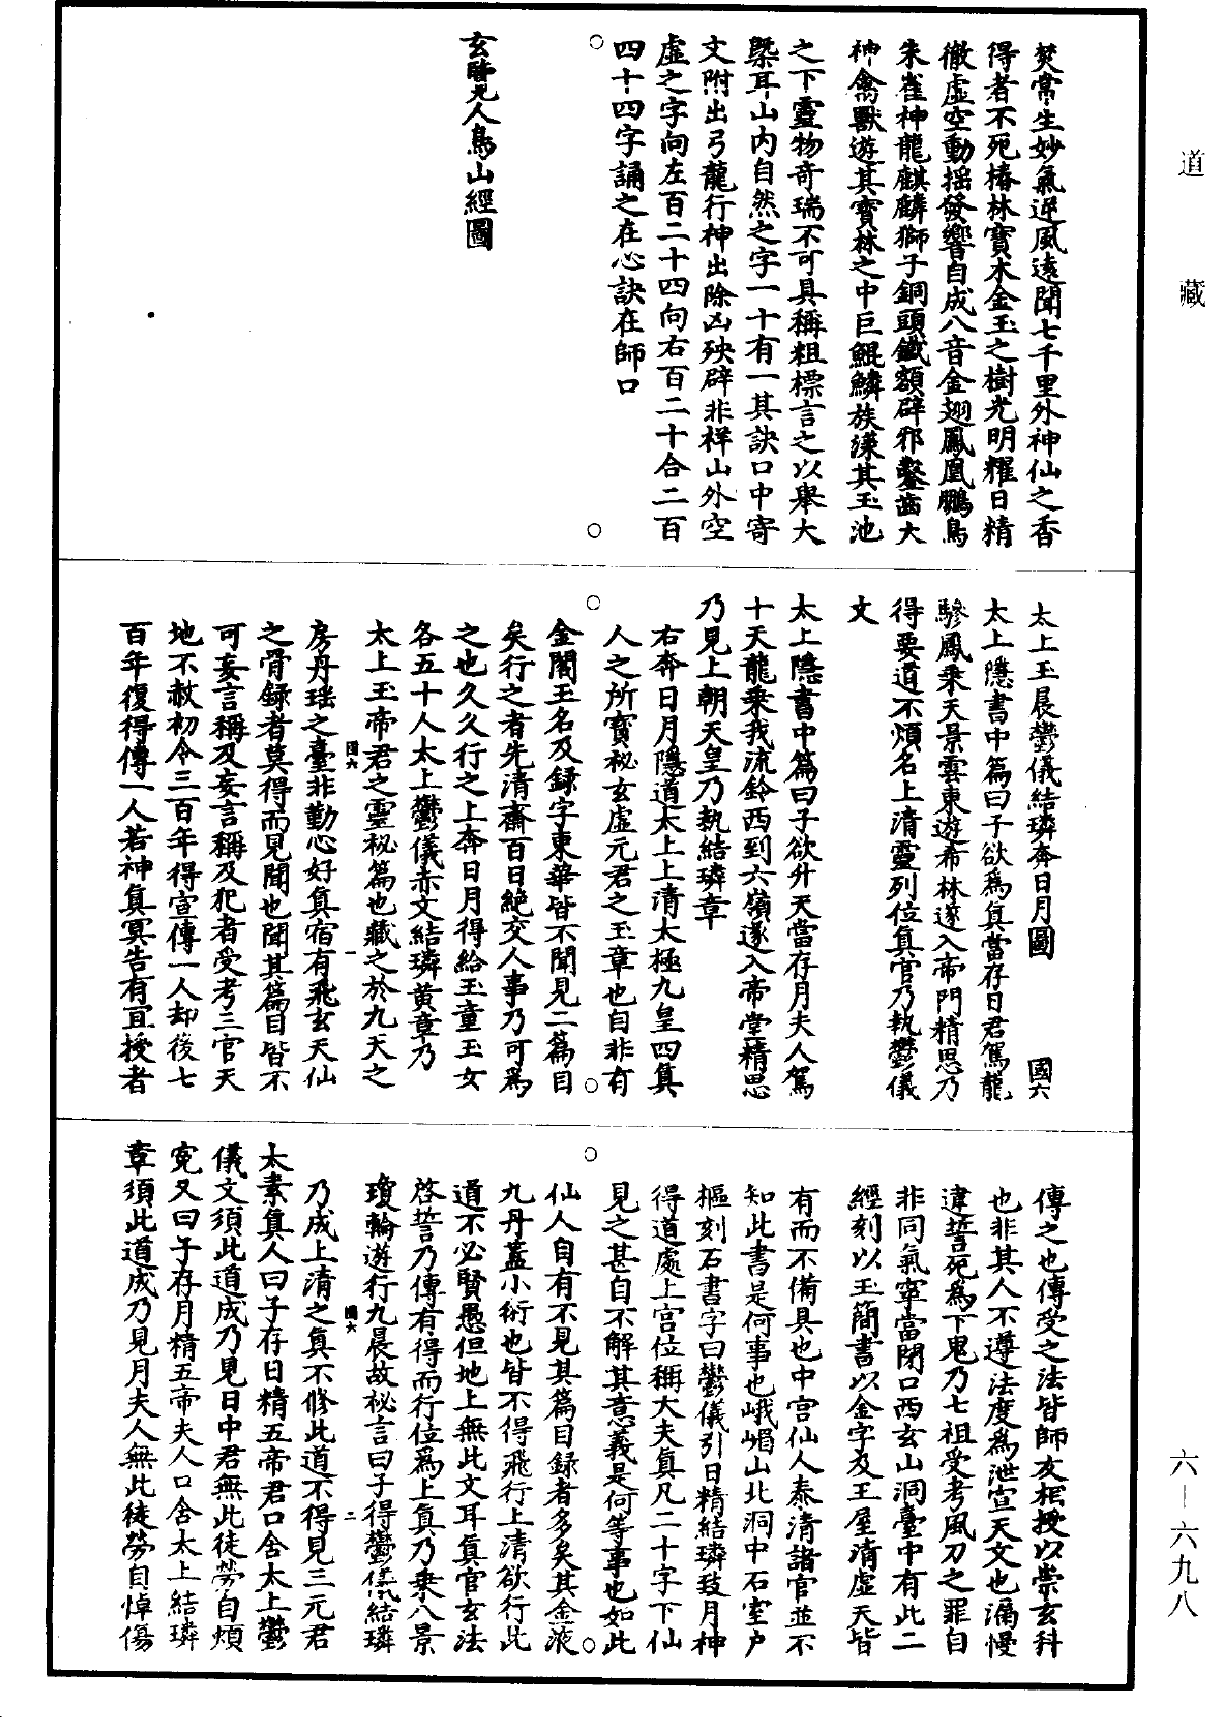 道藏
焚常生妙氣逆風遠聞七千里外神仙之香
得者不死椿林寶木金玉之樹光明耀日精
徹虛空動搖發響自成八音金翅鳳凰鵬鳥
朱雀神龍麒麟獅子銅頭鐵額辟邪鑿齒大
神禽獸遊其寶林之中巨鯤鱗族漾其玉池
之下靈物奇瑞不可具稱粗標言之以舉大
槩耳山內自然之字一十有一其訣口中寄
文附出弓龍行神出除凶殃辟非祥山外空
虛之字向左百二十四向右百二十合二百
四十四字誦之在心訣在師口
玄覽人鳥山經圖
太上玉晨鬱儀結璘奔日月圖 國六
太上隱書中篇曰子欲為真當存日君駕龍
驂鳳乘天景雲東遊希林遂入帝門精思乃
得要道不煩名上清靈列位真官乃執鬱儀
文
太上隱書中篇曰子欲升天當存月夫人駕
十天龍乘我流鈴西到六嶺遂入帝堂精思
乃見上朝天皇乃執結璘章
右奔日月隱道太上上清太極九皇四真
人之所寶祕玄虛元君之玉章也自非有
金閣玉名及錄字東華皆不聞見二篇目
矣行之者先清齋百日絕交人事乃可為
之也久久行之上奔日月得給玉童玉女
各五十人太上鬱儀赤文結璘黃章乃
太上玉帝君之靈祕篇也藏之於九天之
國六 一
房丹瑤之臺非勤心好真宿有飛玄天仙
之骨錄者莫得而見聞也聞其篇目皆不
可妄言稱及妄言稱及犯者受考三官天
地不赦初令三百年得宣傳一人却後七
百年復得傳一人若神真冥告有宜授者
傳之也傳受之法皆師友相授以崇玄科
也非其人不遵法度為泄宣天文也漏慢
違誓死為下鬼乃七祖受考風刀之罪自
非同氣寧當閉口西玄山洞臺中有此二
經刻以玉簡書以金字及王屋清虛天皆
有而不備具也中宮仙人泰清諸官並不
知此書是何事也峨嵋山北洞中石室户
樞刻石書字曰鬱儀引日精結璘致月神
得道處上宮位稱大夫真凡二十字下仙
見之甚自不解其意義是何等事也如此
仙人自有不見其篇目錄者多矣其金液
九丹蓋小術也皆不得飛行上清欲行此
道不必賢愚但地上無此文耳真官玄法
啓誓乃傳有得而行位為上真乃乘八景
瓊輪遊行九晨故祕言曰子得鬱儀結璘
國六 二
乃成上清之真不修此道不得見三元君
太素真人曰子存日精五帝君口含太上鬱
儀文須此道成乃見日中君無此徒勞自煩
寃又曰子存月精五帝夫人口含太上結璘
章須此道成乃見月夫人無此徒勞自悼傷
六—六九八